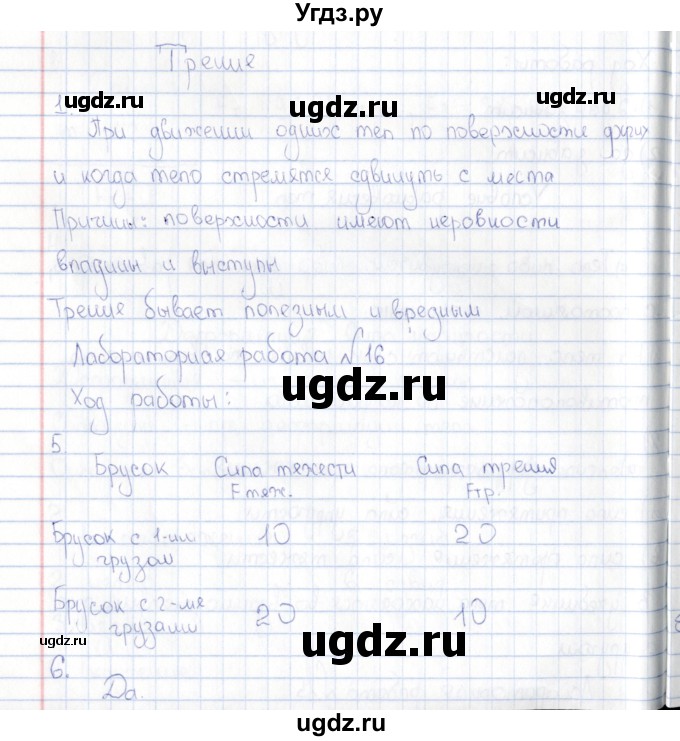 Угдз.ру
Трение
ugdz.ru ugdz.ru ugdz.ru
1. При движении одних тел по поверхности других
и когда тело стремятся сдвинуть с места
Причины: поверхности имеют неровности
впадины и выступы
Трение бывает полезным и вредным
Лабораторная работа №16
ugdz.ru
Ход работы:
5
Брусок Сила тяжести Сила трения
Fтяж. Fтр.
Брусок с 1-им 10 20
грузом
Брусок с 2-мя 20 10
грузами
ugdz.ru ugdz.ru ugdz.ru
6.
Да.
ugdz.ru